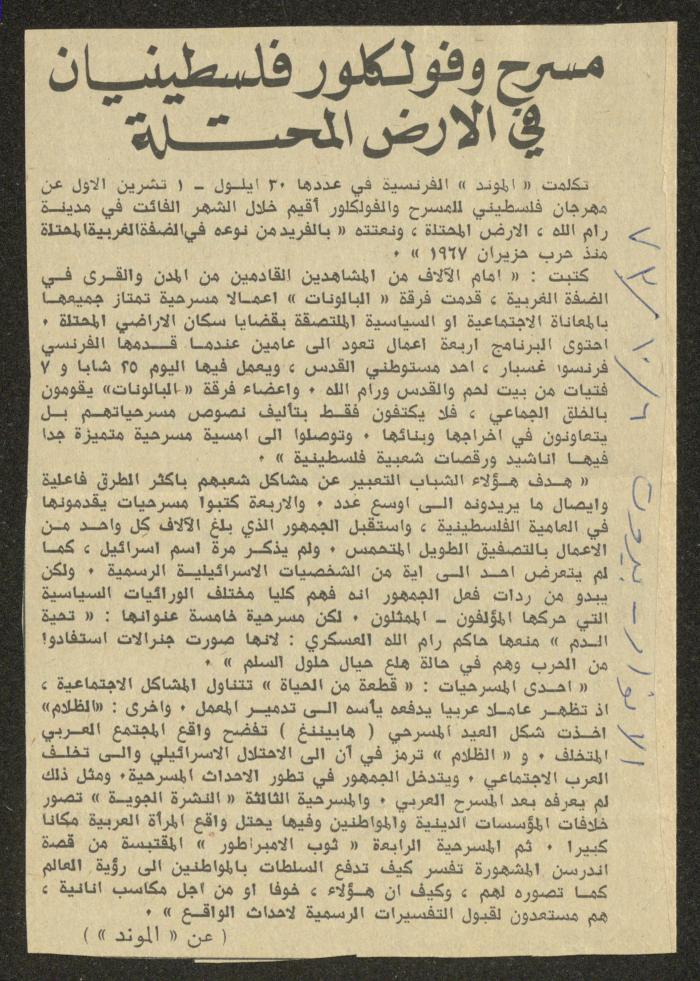 مسرح وفولكلور فلسطينيان
في الارض المحتلة
تكلمت « الموند » الفرنسية في عددها ٣٠ ايلول ـ ١ تشرين الاول عن
مهرجان فلسطيني للمسرح والفولكلور أقيم خلال الشهر الفائت في مدينة
رام الله ، الارض المحتلة ، ونعتته « بالفريد من نوعه في الضفة الغربية المحتلة
منذ حرب حزيران ١٩٦٧ » ٠
كتبت : « امام الآلاف من المشاهدين القادمين من المدن والقرى في
الضفة الغربية ، قدمت فرقة « البالونات » اعمالا مسرحية تمتاز جميعها
بالمعاناة الاجتماعية او السياسية الملتصقة بقضايا سكان الاراضي المحتلة ٠
احتوى البرنامج اربعة اعمال تعود الى عامين عندما قدمها الفرنسي
فرنسوا غسبار ، احد مستوطني القدس ، ويعمل فيها اليوم ٢٥ شابا و ٧
فتيات من بيت لحم والقدس ورام الله ٠ واعضاء فرقة «البالونات» يقومون
بالخلق الجماعي ، فلا يكتفون فقط بتأليف نصوص مسرحياتهم بل
يتعاونون في اخراجها وبنائها ٠ وتوصلوا الى امسية مسرحية متميزة جدا
فيها اناشيد ورقصات شعبية فلسطينية » ٠
« هدف هؤلاء الشباب التعبير عن مشاكل شعبهم باكثر الطرق فاعلية
وايصال ما يريدونه الى اوسع عدد ٠ والاربعة كتبوا مسرحيات يقدمونها
في العامية الفلسطينية ، واستقبل الجمهور الذي بلغ الآلاف كل واحد من
الاعمال بالتصفيق الطويل المتحمس ٠ ولم يذكر مرة اسم اسرائيل ، كما
لم يتعرض احد الى اية من الشخصيات الاسرائيلية الرسمية ٠ ولكن
يبدو من ردات فعل الجمهور انه فهم كليا مختلف الورائيات السياسية
التي حركها المؤلفون ـ الممثلون ٠ لكن مسرحية خامسة عنوانها : « تحية
الدم » منعها حاكم رام الله العسكري : لانها صورت جنرالات استفادوا
من الحرب وهم في حالة هلع حيال حلول السلم » ٠
« احدى المسرحيات : « قطعة من الحياة » تتناول المشاكل الاجتماعية ،
اذ تظهر عاملا عربيا يدفعه يأسه الى تدمير المعمل ٠ واخرى : «الظلام»
اخذت شكل العيد المسرحي ( هابيننغ ) تفضح واقع المجتمع العربي
المتخلف ٠ و « الظلام » ترمز في آن الى الاحتلال الاسرائيلي والى تخلف
العرب الاجتماعي ٠ ويتدخل الجمهور في تطور الاحداث المسرحية ٠ ومثل ذلك
لم يعرفه بعد المسرح العربي ٠ والمسرحية الثالثة « النشرة الجوية » تصور
خلافات المؤسسات الدينية والمواطنين وفيها يحتل واقع المرأة العربية مكانا
كبيرا ٠ ثم المسرحية الرابعة « ثوب الامبراطور » المقتبسة من قصة
اندرسن المشهورة تفسر كيف تدفع السلطات بالمواطنين الى رؤية العالم
كما تصوره لهم ، وكيف ان هؤلاء ، خوفا او من اجل مكاسب انانية ،
هم مستعدون لقبول التفسيرات الرسمية لاحداث الواقع » ٠
( عن « الموند » )
الانوار ـ بيروت ٦/١٠/٧٣